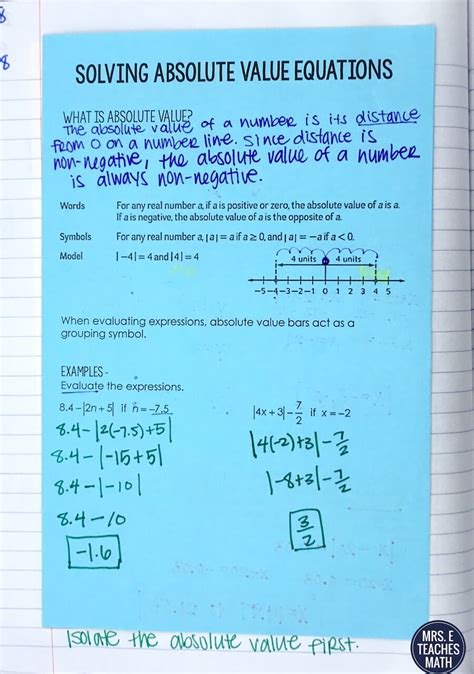 8
8
SOLVING ABSOLUTE VALUE EQUATIONS
WHAT IS ABSOLUTE VALUE?
The absolute value of a number is its distance
from 0 on a number line. Since distance is
non-negative, the absolute value of a number
is always non-negative.
Words For any real number a, if a is positive or zero, the absolute value of a is a.
If a is negative, the absolute value of a is the opposite of a.
Symbols For any real number a, |a| = a if a ≥ 0, and |a| = -a if a < 0.
Model |-4| = 4 and |4| = 4
4 units 4 units
-5 -4 -3 -2 -1 0 1 2 3 4 5
When evaluating expressions, absolute value bars act as a
grouping symbol.
EXAMPLES -
Evaluate the expressions.
8.4 - |2n + 5| if n = -7.5
8.4 - |2(-7.5)+5|
8.4 - |-15+5|
8.4 - |-10|
8.4 - 10
-1.6
|4x + 3| - 7/2 if x = -2
|4(-2)+3| - 7/2
|-8+3| - 7/2
3/2
Isolate the absolute value first.
MRS. E
TEACHES
MATH